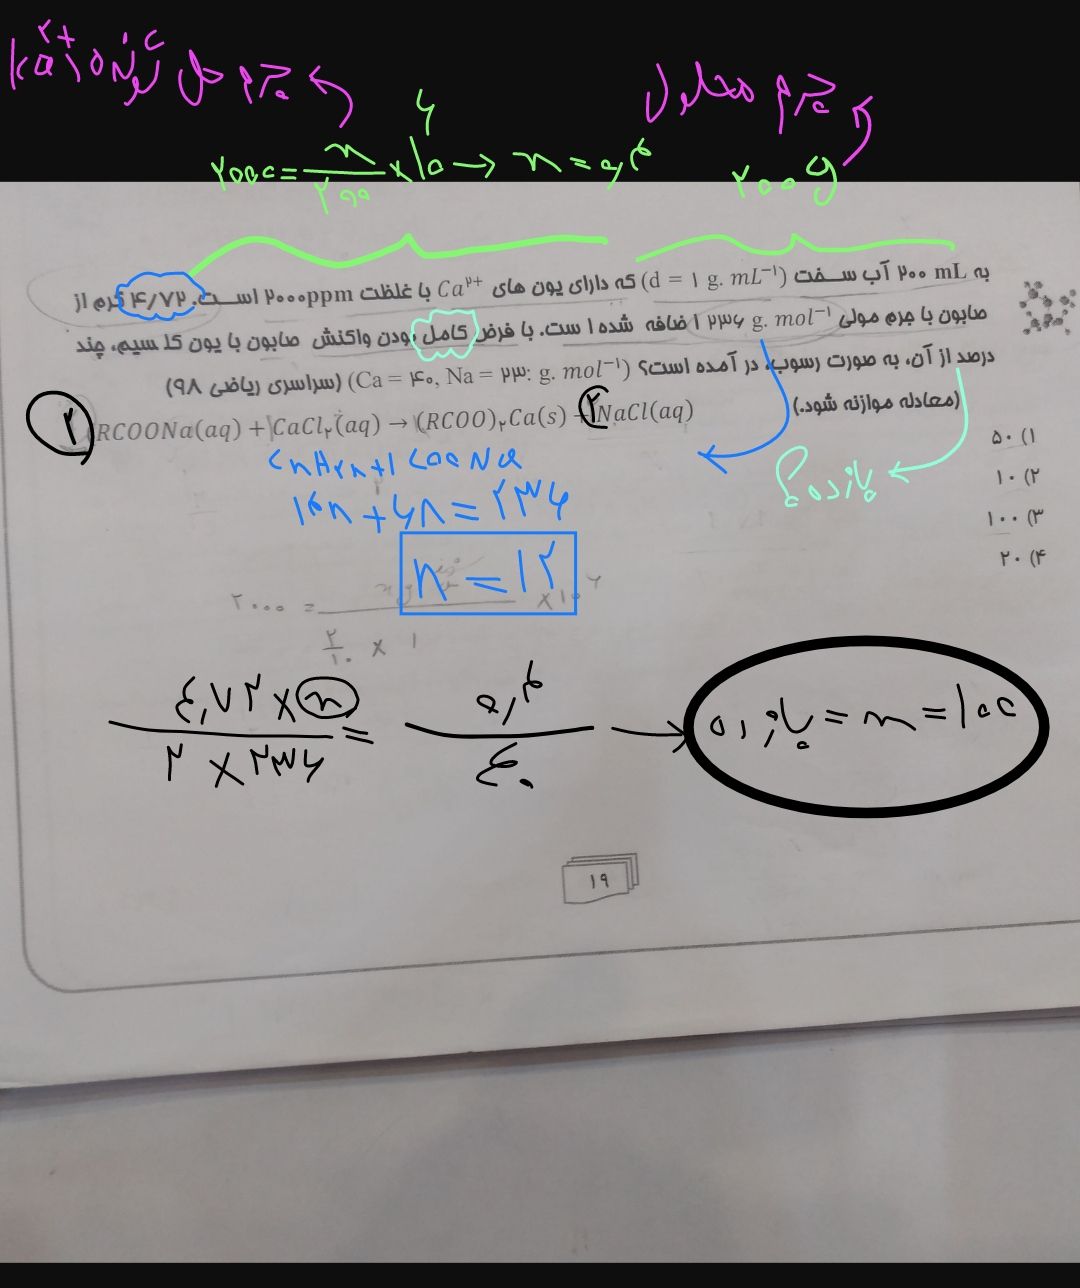 جرم حل شونده یون Ca۲+
جرم محلول
۲۰۰۰ = x/۲۰۰ × ۱۰۶ → x = ۰,۴
۲۰۰ g
به ۲۰۰ mL آب سخت (d = ۱ g. mL⁻¹) که دارای یون های Ca²⁺ با غلظت ۲۰۰۰ppm است. ۴/۷۲ گرم از
صابون با جرم مولی ۲۳۶ g. mol⁻¹ اضافه شده است. با فرض کامل بودن واکنش صابون با یون کلسیم، چند
درصد از آن، به صورت رسوب، در آمده است؟ (Ca = ۴۰, Na = ۲۳: g. mol⁻¹) (سراسری ریاضی ۹۸)
(معادله موازنه شود.)
۲ RCOONa(aq) + CaCl₂(aq) → (RCOO)₂Ca(s) + ۲NaCl(aq)
۱) ۵۰
۲) ۱۰
۳) ۱۰۰
۴) ۲۰
بازده؟
CnH۲n+۱COONa
۱۴n + ۶۸ = ۲۳۶
n = ۱۲
۲۰۰۰ = ــــــ × ۱۰۶
۲/۱۰ × ۱
۴,۷۲ × x / ۲ × ۲۳۶ = ۰,۴ / ۴۰ → بازده = x = ۱۰۰
۱۹